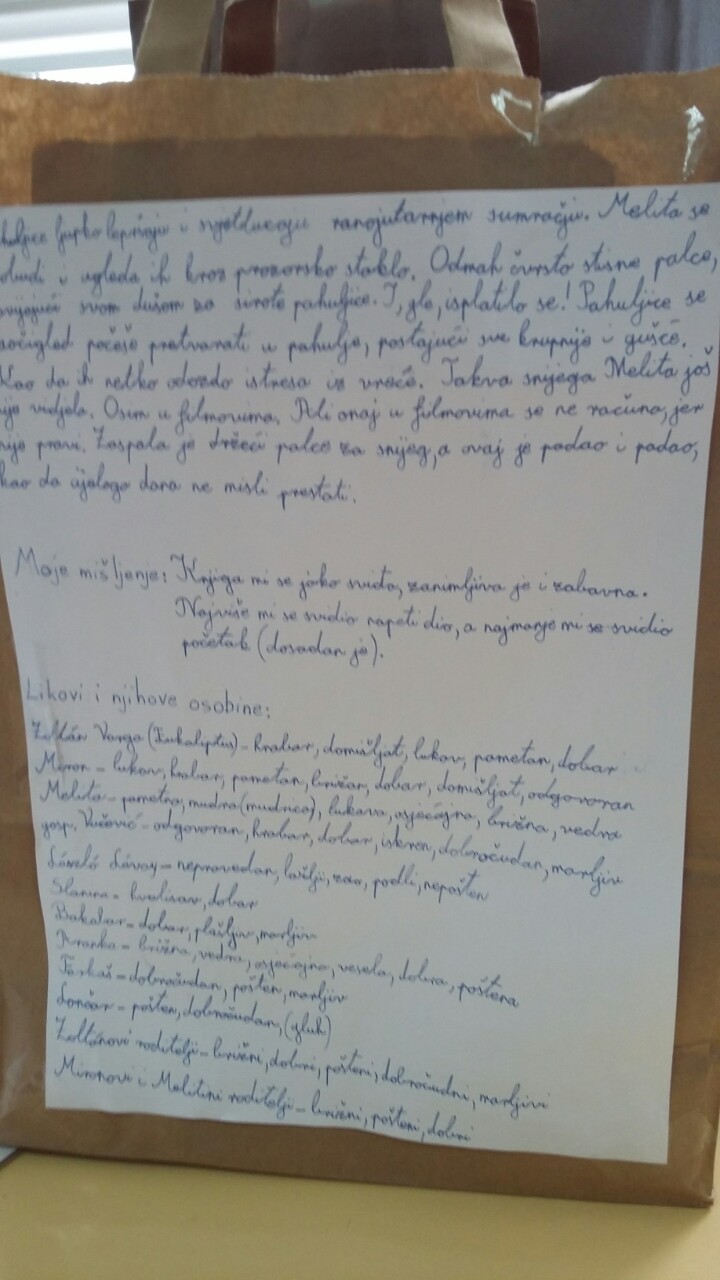 huljice ljupko lepršaju i svjetlucaju ranojutarnjem sumračju. Melita se
budi i ugleda ih kroz prozorsko staklo. Odmah čvrsto stisne palce,
navijajući svom dušom za sirote pahuljice. I, gle, isplatilo se! Pahuljice se
naočigled počeše pretvarati u pahulje, postajući sve krupnije i gušće.
Kao da ih netko odozdo istresa iz vreće. Takva snijega Melita još
nije vidjela. Osim u filmovima. Ali onaj u filmovima se ne računa, jer
nije pravi. Zaspala je držeći palce za snijeg, a ovaj je padao i padao,
kao da cijeloga dana ne misli prestati.
Moje mišljenje: Knjiga mi se jako sviđa, zanimljiva je i zabavna.
Najviše mi se svidio napeti dio, a najmanje mi se svidio
početak (dosadan je).
Likovi i njihove osobine:
Zoltán Varga (Eukaliptus) - hrabar, domišljat, lukav, pametan, dobar
Miron - lukav, hrabar, pametan, brižan, dobar, domišljat, odgovoran
Melita - pametna, mudra (mudrica), lukava, osjećajna, brižna, vedra
gosp. Vučević - odgovoran, hrabar, dobar, iskren, dobroćudan, marljiv
László Lávay - nepravedan, lažljiv, zao, podli, nepošten
Slanina - hvalisav, dobar
Bakalar - dobar, plašljiv, marljiv
Branka - brižna, vedra, osjećajna, vesela, dobra, poštena
Farkaš - dobroćudan, pošten, marljiv
Lončar - pošten, dobroćudan, (gluh)
Zoltánovi roditelji - brižni, dobri, pošteni, dobroćudni, marljivi
Mironovi i Melitini roditelji - brižni, pošteni, dobri